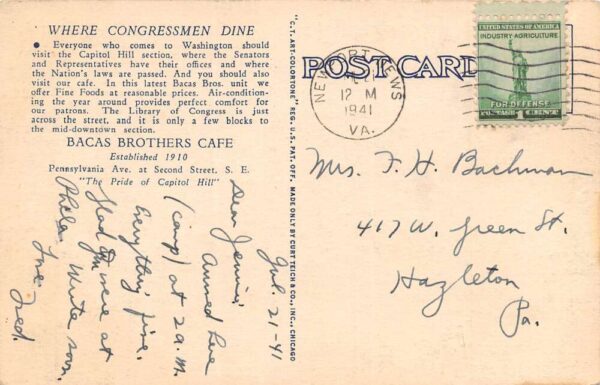 WHERE CONGRESSMEN DINE
● Everyone who comes to Washington should
visit the Capitol Hill section, where the Senators
and Representatives have their offices and where
the Nation's laws are passed. And you should also
visit our cafe. In this latest Bacas Bros. unit we
offer Fine Foods at reasonable prices. Air-condition-
ing the year around provides perfect comfort for
our patrons. The Library of Congress is just
across the street, and it is only a few blocks to
the mid-downtown section.
BACAS BROTHERS CAFE
Established 1910
Pennsylvania Ave. at Second Street, S. E.
"The Pride of Capitol Hill"
Jul. 21-41
Dear Jennie,
Arrived here
(camp) at 2 a.m.
Everything fine.
Glad you were at
Phila. Write soon.
Love
Fred.
"C.T. ART-COLORTONE" REG. U.S. PAT. OFF. MADE ONLY BY CURT TEICH & CO., INC., CHICAGO
POST CARD
NEWPORT NEWS
12 M
1941
VA.
UNITED STATES OF AMERICA
INDUSTRY·AGRICULTURE
FOR DEFENSE
POSTAGE 1 CENT
Mrs. F. H. Bachman
417 W. Green St.
Hazleton
Pa.